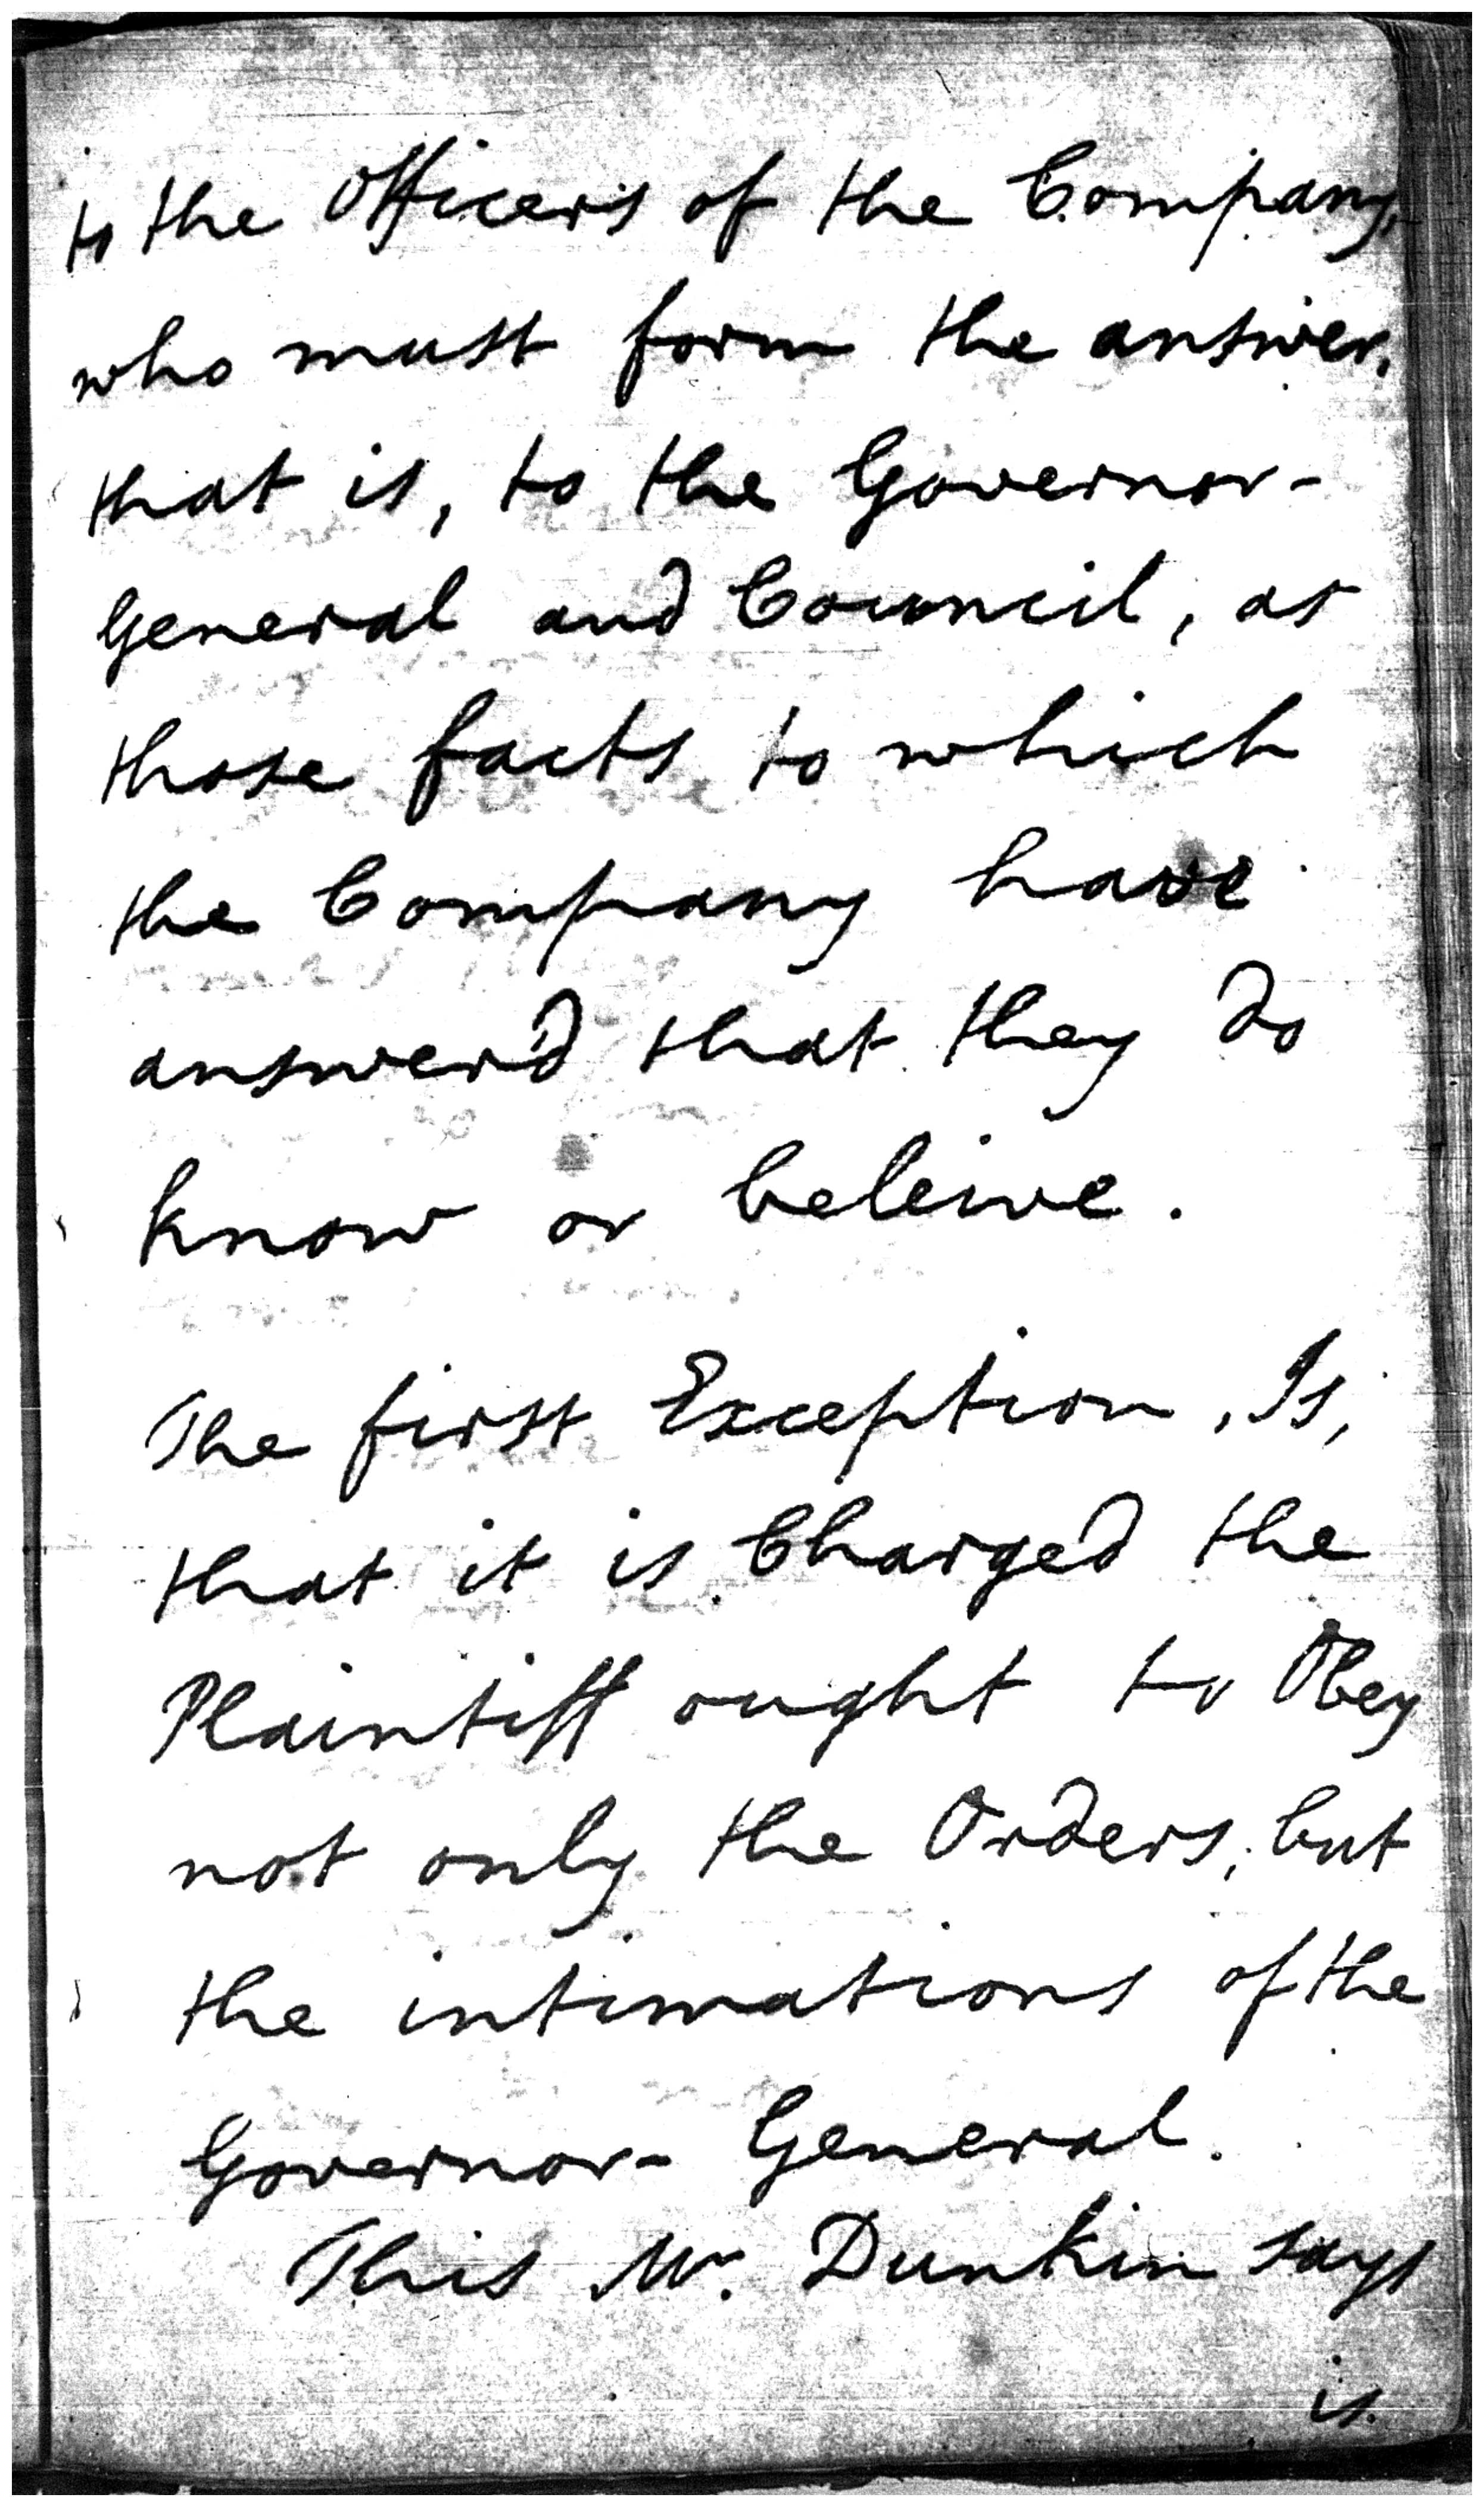 to the Officers of the Company,
who must form the answer,
that is, to the Governor-
General and Council, as
those facts to which
the Company have
answer'd that they do
know or beleive.
The first Exception, Is,
that it is Charged the
Plaintiff ought to Obey
not only the Orders, but
the intimations of the
Governor- General.
This Mr. Dunkin says
is